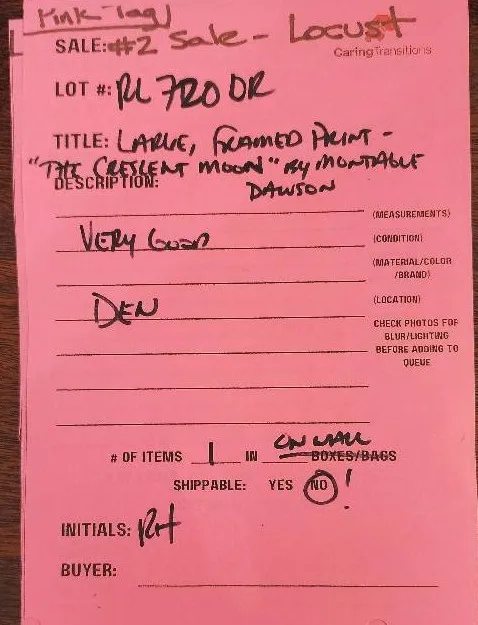 Pink Tag
SALE: #2 Sale - Locust
CaringTransitions
LOT #: RL 720 DR
TITLE: LARGE, FRAMED PRINT -
"THE CRESCENT MOON" BY MONTAGUE
DAWSON
DESCRIPTION:
(MEASUREMENTS)
VERY GOOD (CONDITION)
(MATERIAL/COLOR
/BRAND)
DEN (LOCATION)
CHECK PHOTOS FOR
BLUR/LIGHTING
BEFORE ADDING TO
QUEUE
ON WALL
# OF ITEMS 1 IN BOXES/BAGS
SHIPPABLE: YES NO !
INITIALS: RH
BUYER: